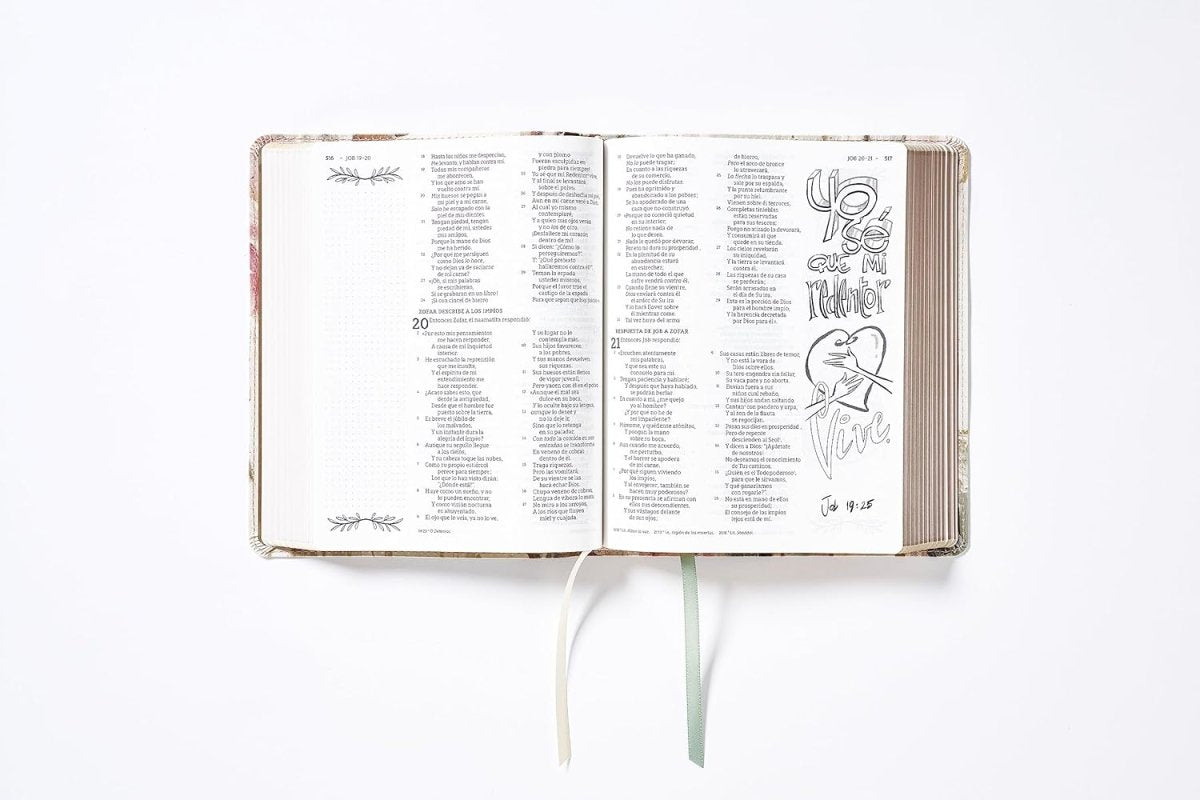 516 – JOB 19-20
18 Hasta los niños me desprecian,
Me levanto, y hablan contra mí.
19 Todos mis compañeros
me aborrecen,
Y los que amo se han
vuelto contra mí.
20 Mis huesos se pegan a
mi piel y a mi carne,
Solo he escapado con la
piel de mis dientes.
21 Tengan piedad, tengan
piedad de mí, ustedes
mis amigos,
Porque la mano de Dios
me ha herido.
22 ¿Por qué me persiguen
como Dios lo hace,
Y no dejan ya de saciarse
de mi carne?
23 »¡Oh, si mis palabras
se escribieran,
Si se grabaran en un libro!
24 ¡Si con cincel de hierro
y con plomo
Fueran esculpidas en
piedra para siempre!
25 Yo sé que mi Redentor vive,
Y al final se levantará
sobre el polvo.
26 Y después de deshecha mi piel,
Aun en mi carne veré a Dios,
27 Al cual yo mismo
contemplaré,
Y a quien mis ojos verán
y no los de otro.
¡Desfallece mi corazón
dentro de mí!
28 Si dicen: "¿Cómo lo
perseguiremos?".
Y: "¿Qué pretexto
hallaremos contra él?",
29 Teman la espada
ustedes mismos,
Porque el furor trae el
castigo de la espada
Para que sepan que hay juicio».
ZOFAR DESCRIBE A LOS IMPÍOS
20 Entonces Zofar, el naamatita respondió:
2 «Por esto mis pensamientos
me hacen responder,
A causa de mi inquietud
interior.
3 He escuchado la reprensión
que me insulta,
Y el espíritu de mi
entendimiento me
hace responder.
4 ¿Acaso sabes esto, que
desde la antigüedad,
Desde que el hombre fue
puesto sobre la tierra,
5 Es breve el júbilo de
los malvados,
Y un instante dura la
alegría del impío?
6 Aunque su orgullo llegue
a los cielos,
Y su cabeza toque las nubes,
7 Como su propio estiércol
perece para siempre;
Los que lo han visto dirán:
"¿Dónde está?".
8 Huye como un sueño, y no
lo pueden encontrar,
Y como visión nocturna
es ahuyentado.
9 El ojo que lo veía, ya no lo ve,
Y su lugar no lo
contempla más.
10 Sus hijos favorecen
a los pobres,
Y sus manos devuelven
sus riquezas.
11 Sus huesos están llenos
de vigor juvenil,
Pero yacen con él en el polvo.
12 »Aunque el mal sea
dulce en su boca,
Y lo oculte bajo su lengua,
13 Aunque lo desee y
no lo deje ir,
Sino que lo retenga
en su paladar,
14 Con todo la comida en sus
entrañas se transforma
En veneno de cobras
dentro de él.
15 Traga riquezas,
Pero las vomitará;
De su vientre se las
hará echar Dios.
16 Chupa veneno de cobras,
Lengua de víbora lo mata.
17 No mira a los arroyos,
A los ríos que fluyen
miel y cuajada.
JOB 20-21 – 517
18 Devuelve lo que ha ganado,
No lo puede tragar;
En cuanto a las riquezas
de su comercio,
No las puede disfrutar.
19 Pues ha oprimido y
abandonado a los pobres;
Se ha apoderado de una
casa que no construyó.
20 »Porque no conoció quietud
en su interior,
No retiene nada de
lo que desea.
21 Nada le quedó por devorar,
Por eso no dura su prosperidad.
22 En la plenitud de su
abundancia estará
en estrechez;
La mano de todo el que
sufre vendrá contra él.
23 Cuando llene su vientre,
Dios enviará contra él
el ardor de Su ira
Y lo hará llover sobre
él mientras come.
24 Tal vez huya del arma
de hierro,
Pero el arco de bronce
lo atravesará.
25 La flecha lo traspasa y
sale por su espalda,
Y la punta relumbrante
por su hiel.
Vienen sobre él terrores,
26 Completas tinieblas
están reservadas
para sus tesoros;
Fuego no atizado lo devorará,
Y consumirá al que
quede en su tienda.
27 Los cielos revelarán
su iniquidad,
Y la tierra se levantará
contra él.
28 Las riquezas de su casa
se perderán;
Serán arrasadas en
el día de Su ira.
29 Esta es la porción de Dios
para el hombre impío,
Y la herencia decretada
por Dios para él».
RESPUESTA DE JOB A ZOFAR
21 Entonces Job respondió:
2 «Escuchen atentamente
mis palabras,
Y que sea este su
consuelo para mí.
3 Tengan paciencia y hablaré;
Y después que haya hablado,
se podrán burlar.
4 En cuanto a mí, ¿me quejo
yo al hombre?
¿Y por qué no he de
ser impaciente?
5 Mírenme, y quédense atónitos,
Y pongan la mano
sobre su boca.
6 Aun cuando me acuerdo,
me perturbo,
Y el horror se apodera
de mi carne.
7 ¿Por qué siguen viviendo
los impíos,
Y al envejecer, también se
hacen muy poderosos?
8 En su presencia se afirman con
ellos sus descendientes,
Y sus vástagos delante
de sus ojos;
9 Sus casas están libres de temor,
Y no está la vara de
Dios sobre ellos.
10 Su toro engendra sin fallar,
Su vaca pare y no aborta.
11 Envían fuera a sus
niños cual rebaño,
Y sus hijos andan saltando.
12 Cantan con pandero y arpa,
Y al son de la flauta
se regocijan.
13 Pasan sus días en prosperidad,
Pero de repente
descienden al Seol.
14 Y dicen a Dios: "¡Apártate
de nosotros!
No deseamos el conocimiento
de Tus caminos.
15 ¿Quién es el Todopoderoso,
para que le sirvamos,
Y qué ganaríamos
con rogarle?".
16 No está en mano de ellos
su prosperidad;
El consejo de los impíos
lejos está de mí.
Yo
sé
QUE MI
redentor
Vive.
Job 19:25